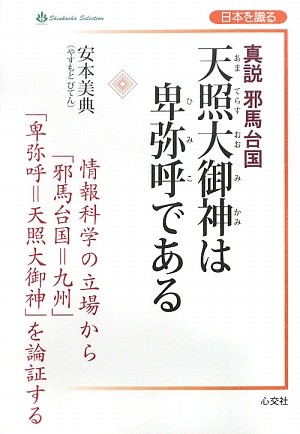 Shinkosha Selection
日本を識る
真説 邪馬台国
天照大御神は
あまてらすおおみかみ
卑弥呼である
ひみこ
安本美典
(やすもとびてん)
情報科学の立場から
「邪馬台国=九州」
「卑弥呼=天照大御神」を論証する
心交社